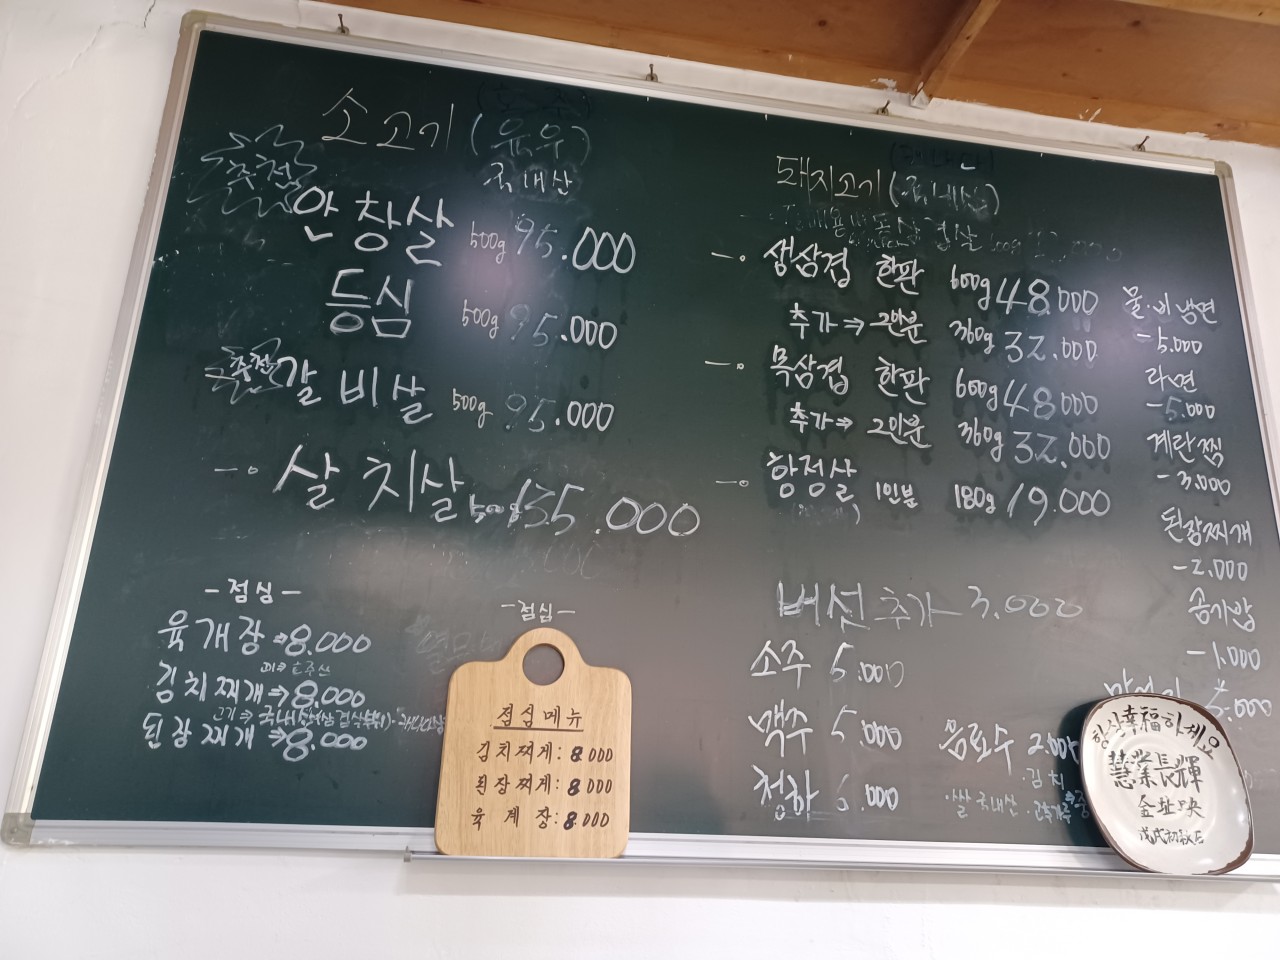 소고기 (육우)
국내산
추천 안창살 500g 95.000
등심 500g 95.000
추천 갈비살 500g 95.000
살치살 500g 135.000
-점심-
육개장 ⇒ 8.000
김치찌개 ⇒ 8.000
된장찌개 ⇒ 8.000
-점심-
점심메뉴
김치찌게: 8.000
된장찌게: 8.000
육계장: 8.000
돼지고기 (국내산)
생삼겹 한판 600g 48.000
추가 ⇒ 2인분 360g 32.000
목삼겹 한판 600g 48.000
추가 ⇒ 2인분 360g 32.000
항정살 1인분 180g 19.000
버섯추가 3.000
소주 5.000
맥주 5.000
청하 6.000
음료수 2.00
김치
쌀 국내산
물.비냉면
-5.000
라면
-5.000
계란찜
-3.000
된장찌개
-2.000
공기밥
-1.000
항상幸福하세요
慧業長輝